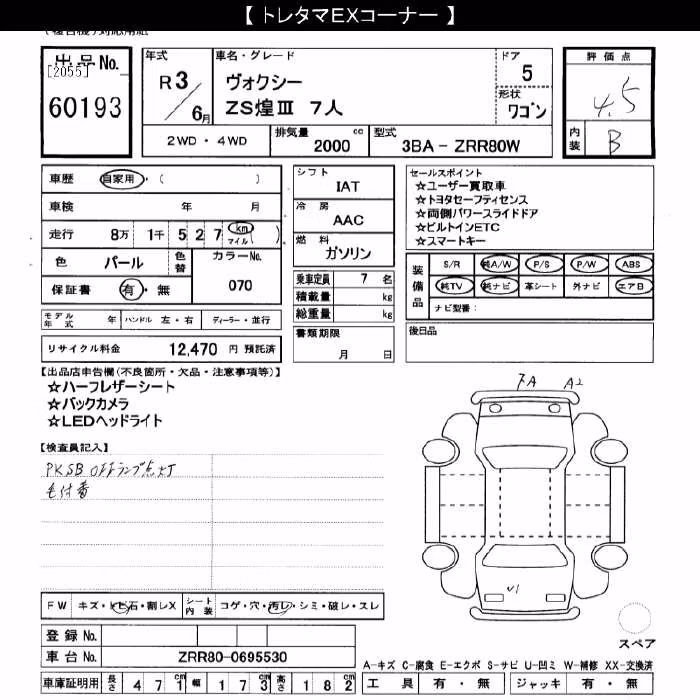 【 トレタマEXコーナー 】
出品No.
[2055]
60193
年式
R 3/6月
車名・グレード
ヴォクシー
ZS煌Ⅲ 7人
ドア
5
形状
ワゴン
評価点
4.5
内装
B
2WD・4WD
排気量 2000 cc
型式 3BA-ZRR80W
車歴 自家用・( )
車検 年 月
走行 8万 1千 5 2 7 km マイル ( )
色 パール 色替 カラーNo.
070
保証書 有・無
モデル年式 年 ハンドル 左・右 ディーラー・並行
リサイクル料金 12,470 円 預託済
シフト
IAT
冷房
AAC
燃料
ガソリン
乗車定員 7 名
積載量 kg
総重量 kg
書類期限
月 日
セールスポイント
☆ユーザー買取車
☆トヨタセーフティセンス
☆両側パワースライドドア
☆ビルトインETC
☆スマートキー
装備品
S/R 純A/W P/S P/W ABS
純TV 純ナビ 革シート 外ナビ エアB
ナビ型番:
後日品
【出品店申告欄(不良箇所・欠品・注意事項等)】
☆ハーフレザーシート
☆バックカメラ
☆LEDヘッドライト
【検査員記入】
PKSB OFFランプ点灯
毛付着
7A A2
U1
FW キズ・トビ石・割レX シート内装 コゲ・穴・汚レ・シミ・破レ・スレ
登録No.
車台No. ZRR80-0695530
車庫証明用 長さ 471cm 幅 173cm 高さ 182cm
スペア
A-キズ C-腐食 E-エクボ S-サビ U-凹ミ W-補修 XX-交換済
工具 有・無 ジャッキ 有・無